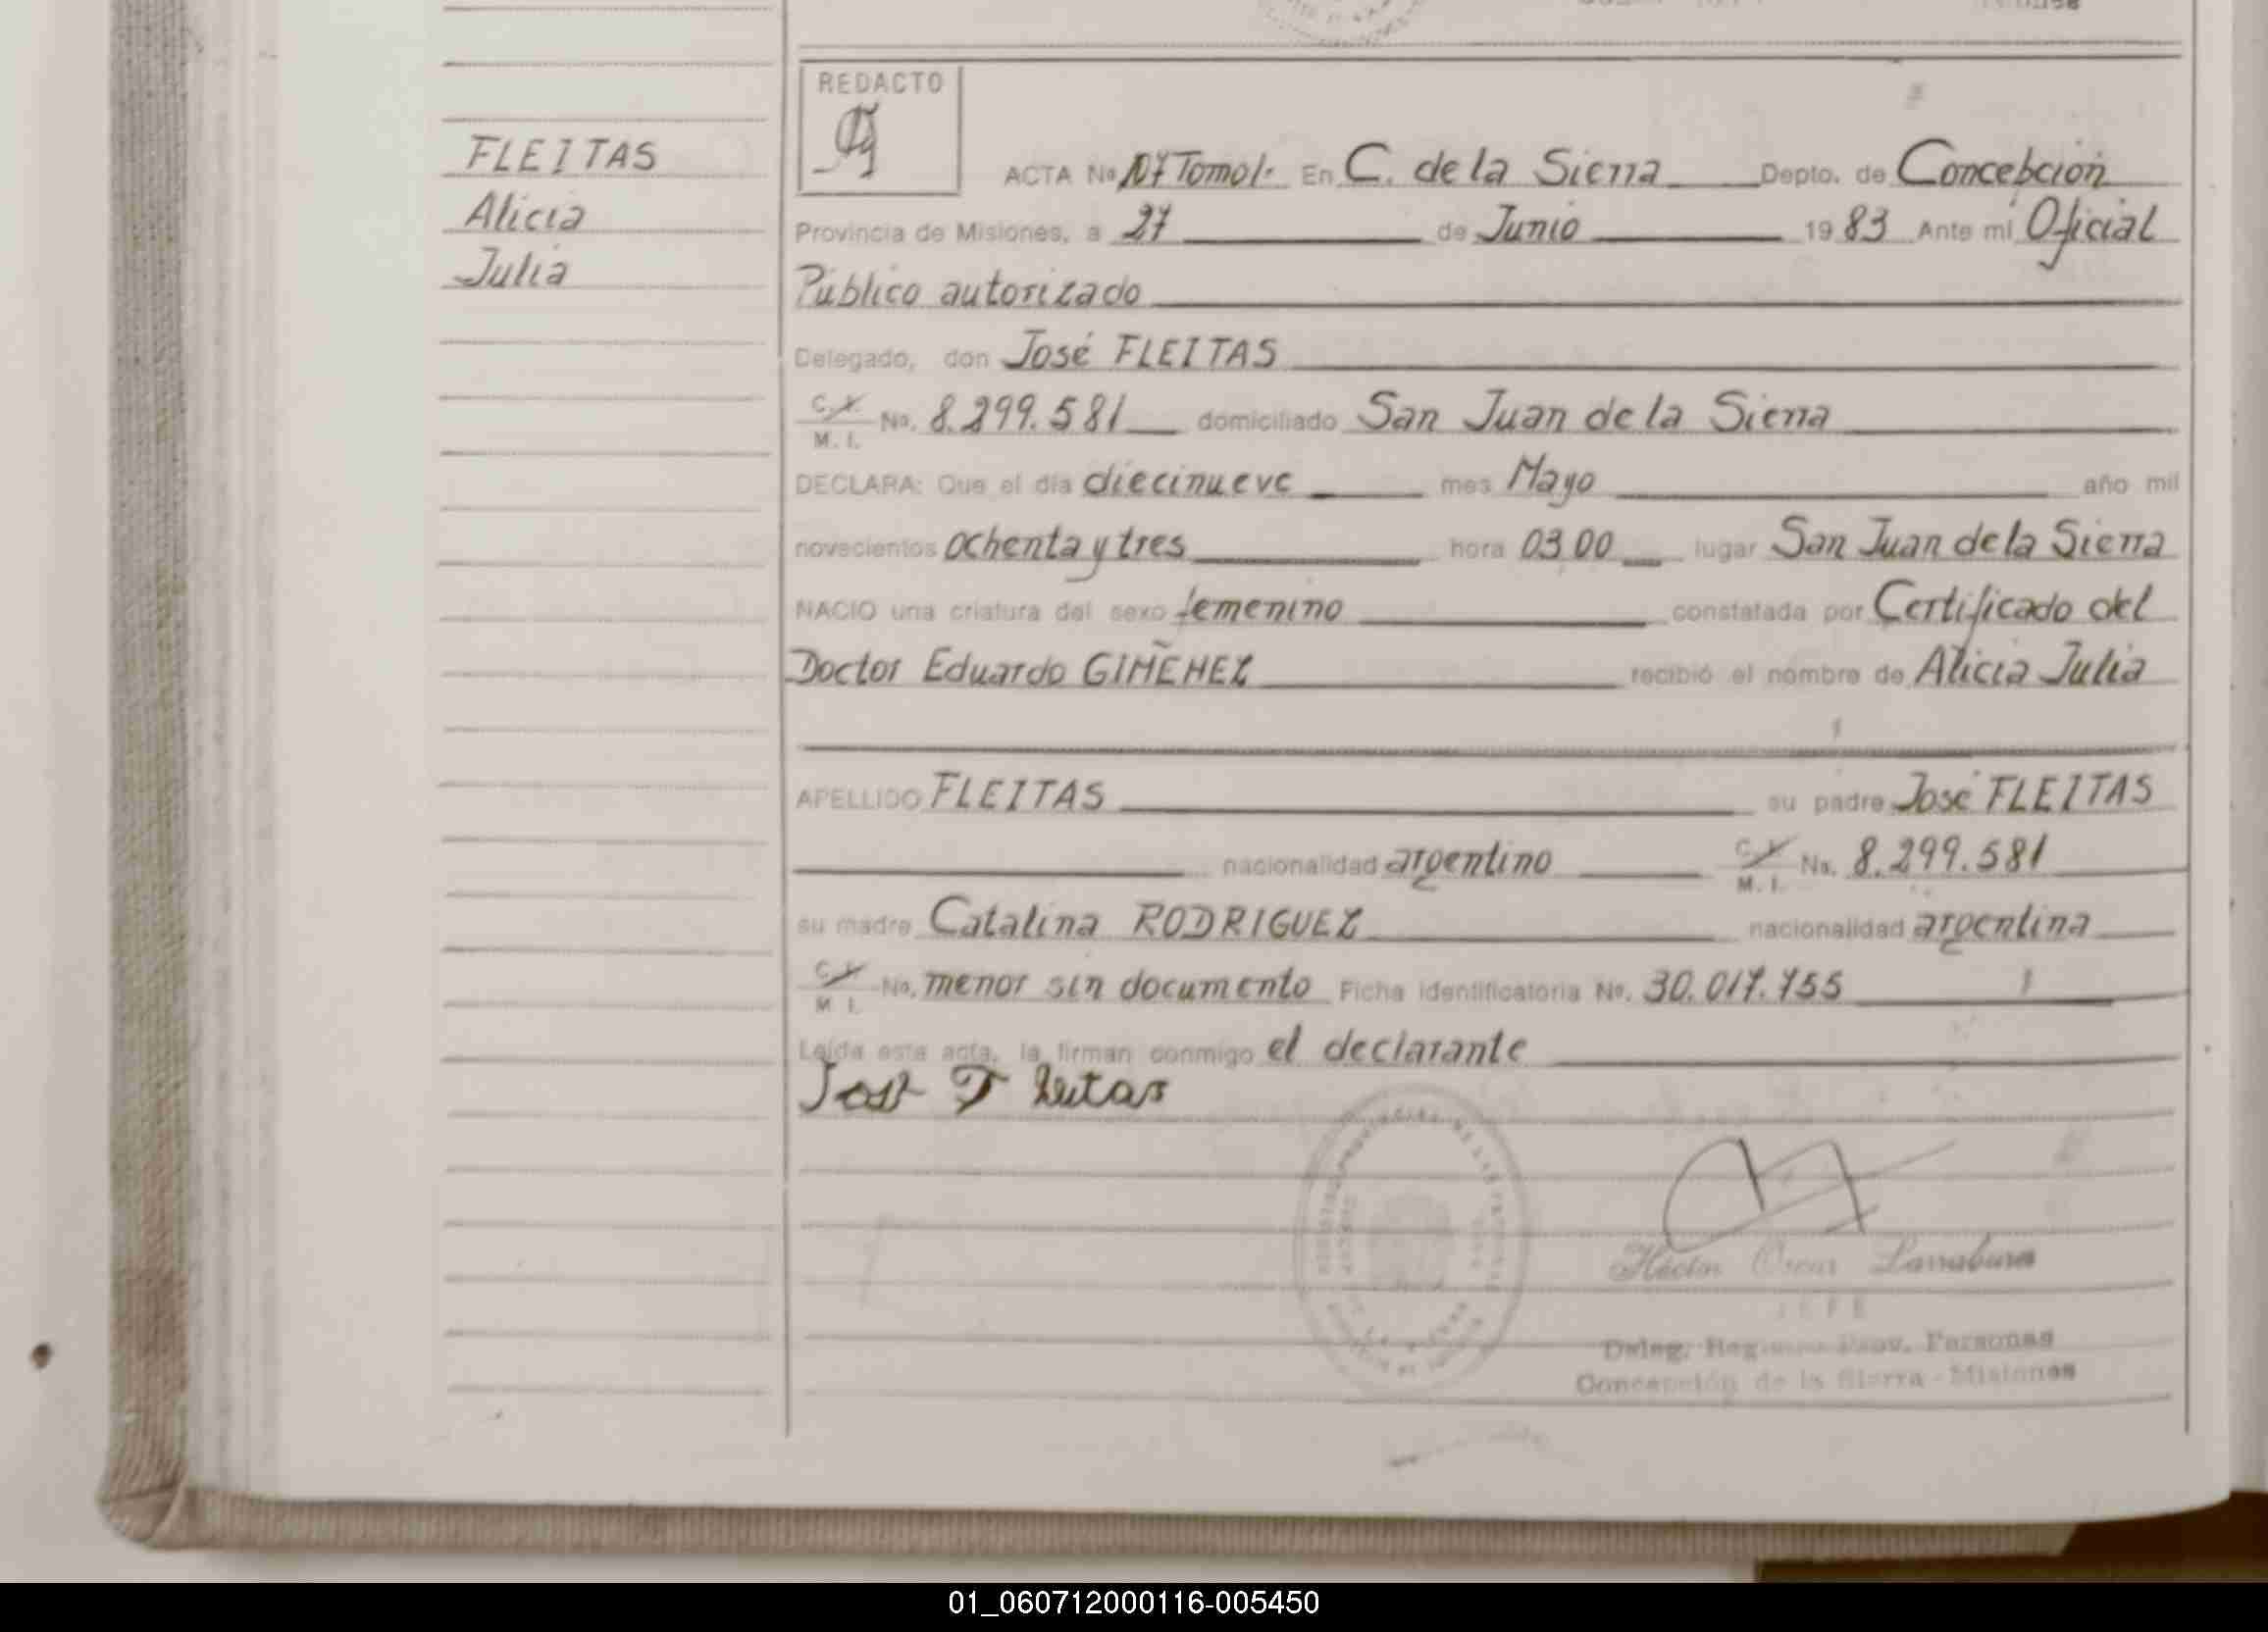 FLEITAS
Alicia
Julia
REDACTO
ACTA No Tomo I. En C. de la Sierra Depto. de Concebción
Provincia de Misiones, a 27 de Junio 1983 Ante mí Oficial
Público autorizado
Delegado, don José FLEITAS
C. I. M. I. No. 8.299.581 domiciliado San Juan de la Sierra
DECLARA: Que el día diecinueve mes Mayo año mil
novecientos ochenta y tres hora 03,00 lugar San Juan de la Sierra
NACIO una criatura del sexo femenino constatada por Certificado del
Doctor Eduardo recibió el nombre de Alicia Julia
APELLIDO FLEITAS su padre José FLEITAS
nacionalidad argentino C. I. M. I. No. 8.299.581
su madre Catalina RODRIGUEZ nacionalidad argentina
C. I. M. I. No. menor sin documento Ficha identificatoria No. 30.017.755
Leída esta acta, la firman conmigo el declarante
José Fleitas
Héctor Oscar
JEFE
Deleg. Registro Prov. Personas
Concepción de la Sierra - Misiones
01_060712000116-005450